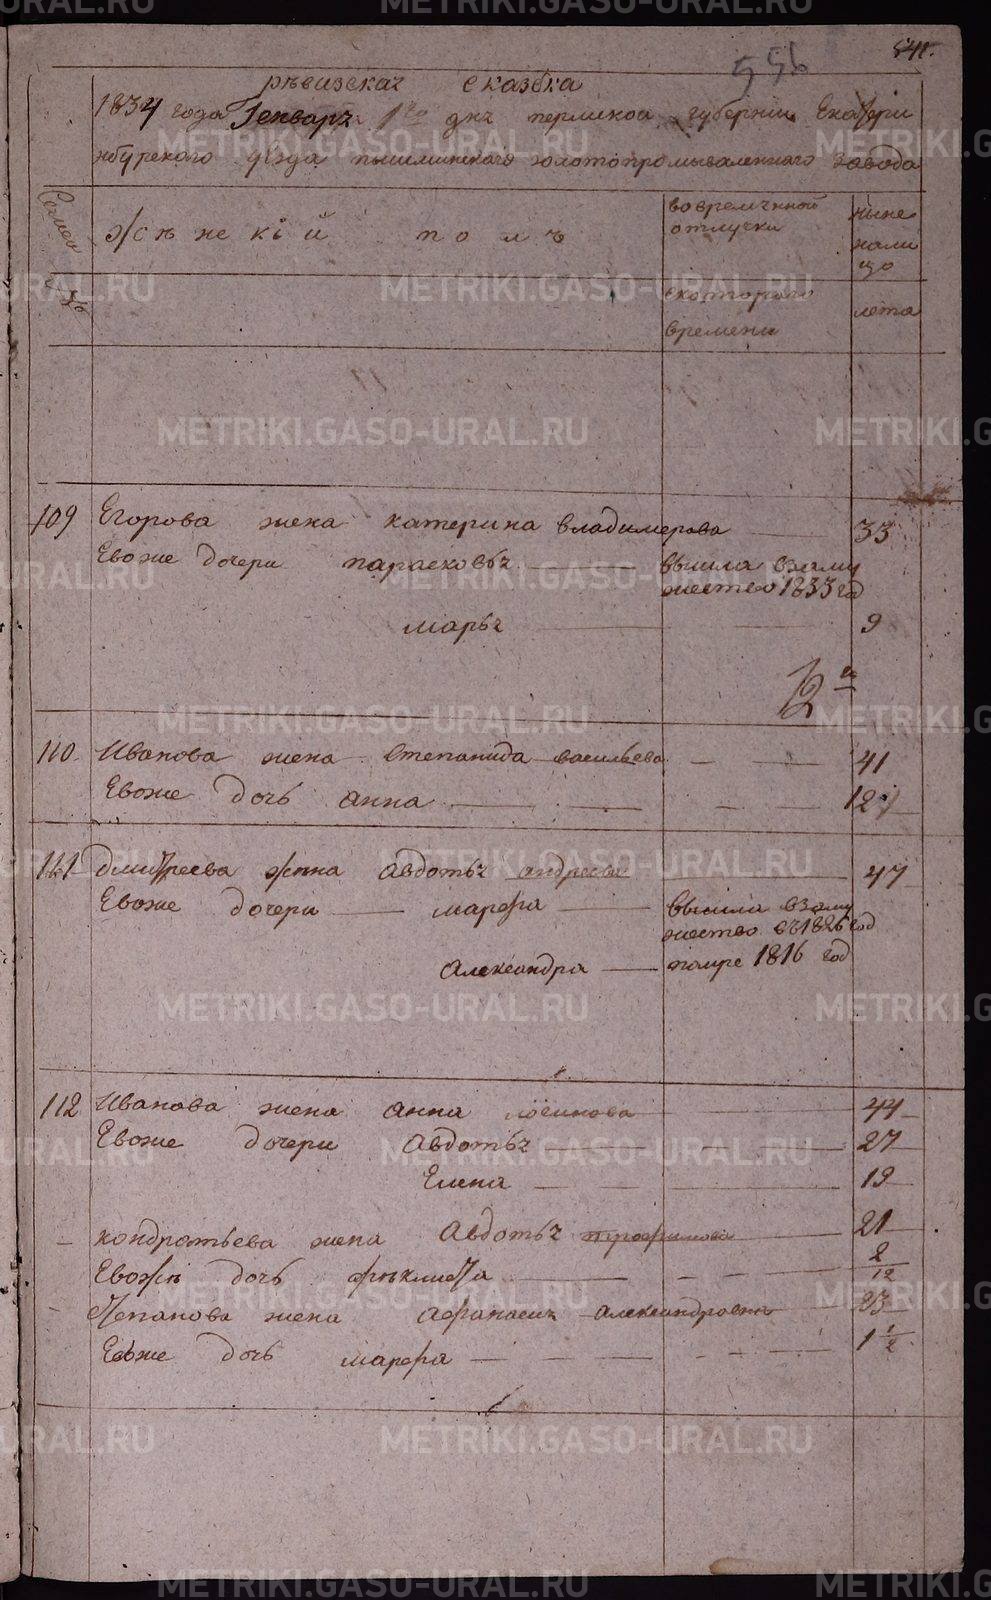 541.
556
ревизская сказка
1834 года Генваря 1го дня пермской губернии Екатери
нбурского уезда пышминского золотопромываленного завода
женский полъ
вовременной
отлучки
ныне
нали
цо
скоторого
времени
лета
109 Егорова жена катерина владимерова 33
Евоже дочери парасковья вышла взаму
жество 1833 год
марья 9
110 Иванова жена степанида васильева 41
Евоже дочь анна 12
111 дмитреева жена авдотья андреева 47
Евоже дочери марфа вышла взаму
жество въ 1826 год
Александра помре 1816 год
112 Иванова жена анна логинова 44
Евоже дочери авдотья 27
Елена 19
кондратьева жена Авдотья трофимова 21
Евоже дочь феклиста 2/12
Степанова жена афанасия александровна 23
Евоже дочь марфа 1 1/2
METRIKI.GASO-URAL.RU